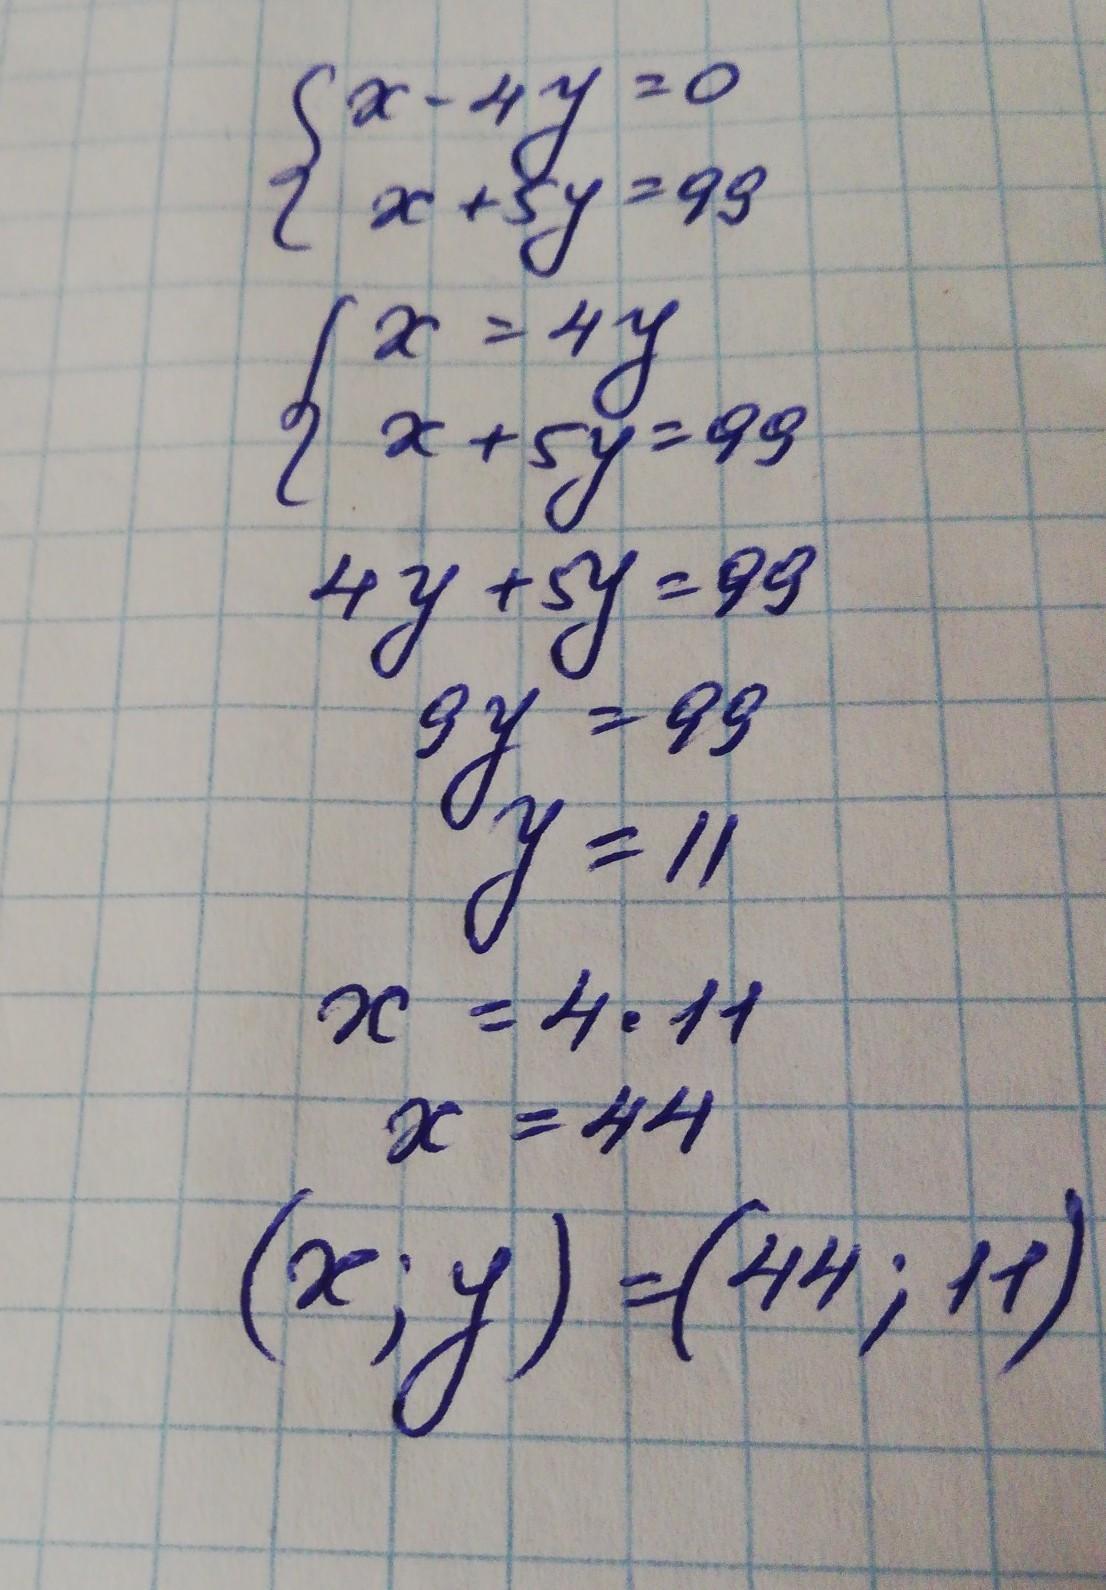 x - 4y = 0
x + 5y = 99
x = 4y
x + 5y = 99
4y + 5y = 99
9y = 99
y = 11
x = 4 · 11
x = 44
(x; y) = (44; 11)